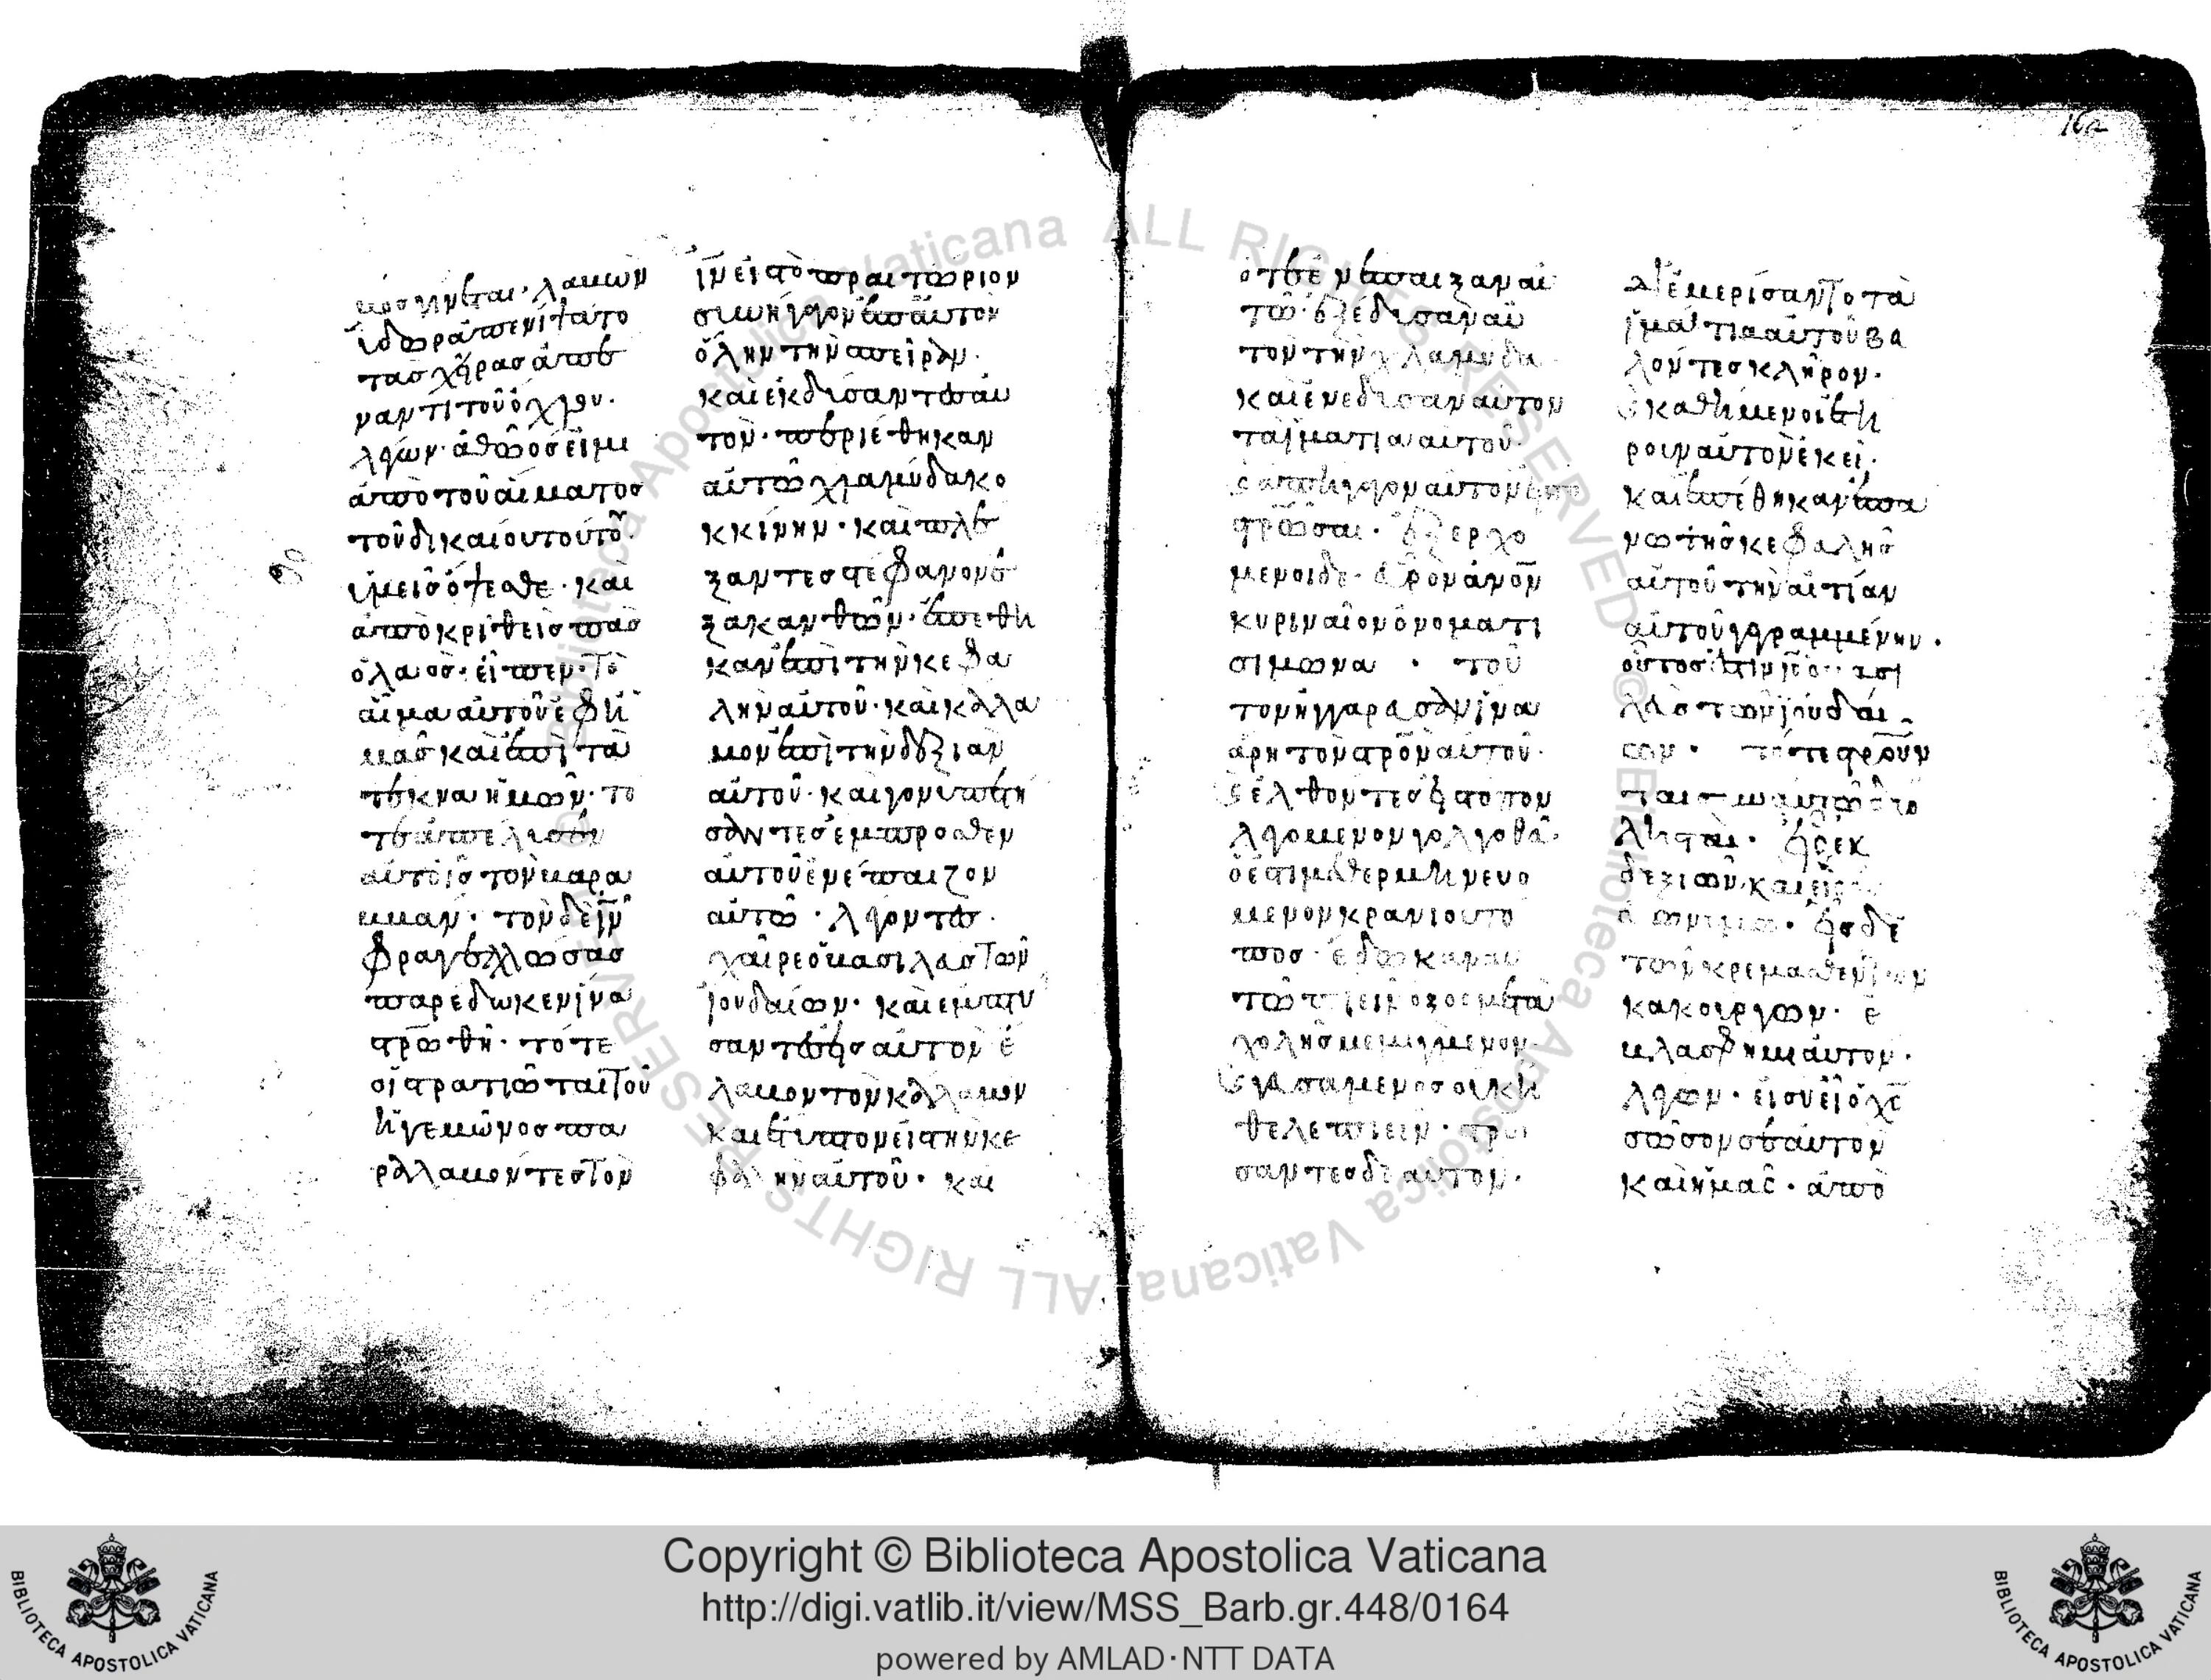 μοσ γινεται· λαμων
ϊδορ ἀπενίψατο
τασ χῆρασ ἀπε
ναντι τοῦ ὄχλου·
λέγων· ἀθῶοσ εἰμι
ἀπὸ τοῦ αἵματοσ
τοῦ δικαίου τούτου·
ὑμεῖσ ὄψεσθε· καὶ
ἀποκριθεὶσ πᾶσ
ὁ λαοσ· εἶπεν· Τὸ
αἷμα αὐτοῦ ἐφ ἡ
μᾶσ καὶ ἐπὶ τὰ
τέκνα ἡμῶν· το
τε ἀπελισεν
αὐτοῖσ τὸν βαρα
μμαν· τὸν δὲ ιν
φραγελλώσασ
παρέδωκεν ἵνα
στρωθῆ· τότε
οἱ στρατιῶται Τοῦ
ἡγεμῶνοσ πα
ραλαμοντεσ Τον
ιν εἰσ τὸ πραιτώριον
συνήγαγον ἐπ αὐτὸν
ὅλην τὴν σπεῖραν·
καὶ ἐκδισαντεσ αὐ
τὸν· περιέθηκαν
αὐτῶ χλαμύδα κο
κκίνην· καὶ πλε
ξαντεσ στεφανον ἐ
ξ ακανθῶν· ἐπεθη
καν ἐπι τὴν κεφα
λὴν αὐτοῦ· καὶ κάλα
μον ἐπὶ τὴν δεξιαν
αὐτοῦ· και γονυπετη
σαντεσ ἐμπροσθεν
αὐτοῦ ἐνέπαιζον
αὐτῶ· λέγοντεσ·
χαῖρε ὁ βασιλεὺσ Τῶν
ἰουδαίων· καὶ ἐμπτυ
σαντεσ εἰσ αὐτὸν ἔ
λαμον τὸν κάλαμον
και ἔτυπτον εἰσ τὴν κε
φαλὴν αὐτοῦ· και
ὅτε ἐνέπαιξαν αὐ
τῶ· ἐξέδισαν αὐ
τὸν τὴν χλαμυδα
καὶ ἐνεδισαν αὐτον
τὰ ἱματια αυτοῦ·
ἀπήγαγον αὐτὸν
στρῶσαι· ἐξερχο
μενοι δε· εὗρον ἀνον
κυριναῖον ὀνοματι
σιμωνα · τοῦ
τον ἠγγαρευσαν ἵνα
ἄρη τὸν στρὸν αὐτοῦ·
ἐλθοντεσ εἰσ τοπον
λεγομενον γολγοθᾶ·
ὅ ἐστι μεθερμηνευο
μενον κρανιου το
ποσ· ἔδωκαν αυ
τῶ πιεῖν οξοσ μετὰ
χολησ μεμιγμενον·
γευσαμενοσ οὐκ ἠ
θελε πιειν· στρω
σαντεσ δὲ αὐτον·
διεμερίσαντο τὰ
ἱμάτια αὐτοῦ βα
λόντεσ κλῆρον·
καθήμενοι ἐτή
ρουν αὐτὸν ἐκεῖ·
καὶ ἐπέθηκαν ἐπα
νω τῆσ κεφαλησ
αὐτοῦ τὴν αἰτίαν
αὐτοῦ γεγραμμένην·
οὗτοσ ἐστιν ὁ βασι
λεὺσ τῶν ἰουδαί
ων· τότε στροῦν
ται σὺν αὐτῶ δύο
λησταί· εἷσ ἐκ
δεξιῶν καὶ εἷσ
εὐωνύμων· εἷσ δὲ
τῶν κρεμασθέντων
κακούργων· ἐ
μλασφήμει αὐτον·
λέγων· εἰ σὺ εἶ ὁ χσ
σῶσον σεαυτὸν
καὶ ἡμᾶσ· ἀπο
Copyright © Biblioteca Apostolica Vaticana
http://digi.vatlib.it/view/MSS_Barb.gr.448/0164
powered by AMLAD·NTT DATA
BIBLIOTECA APOSTOLICA VATICANA
BIBLIOTECA APOSTOLICA VATICANA